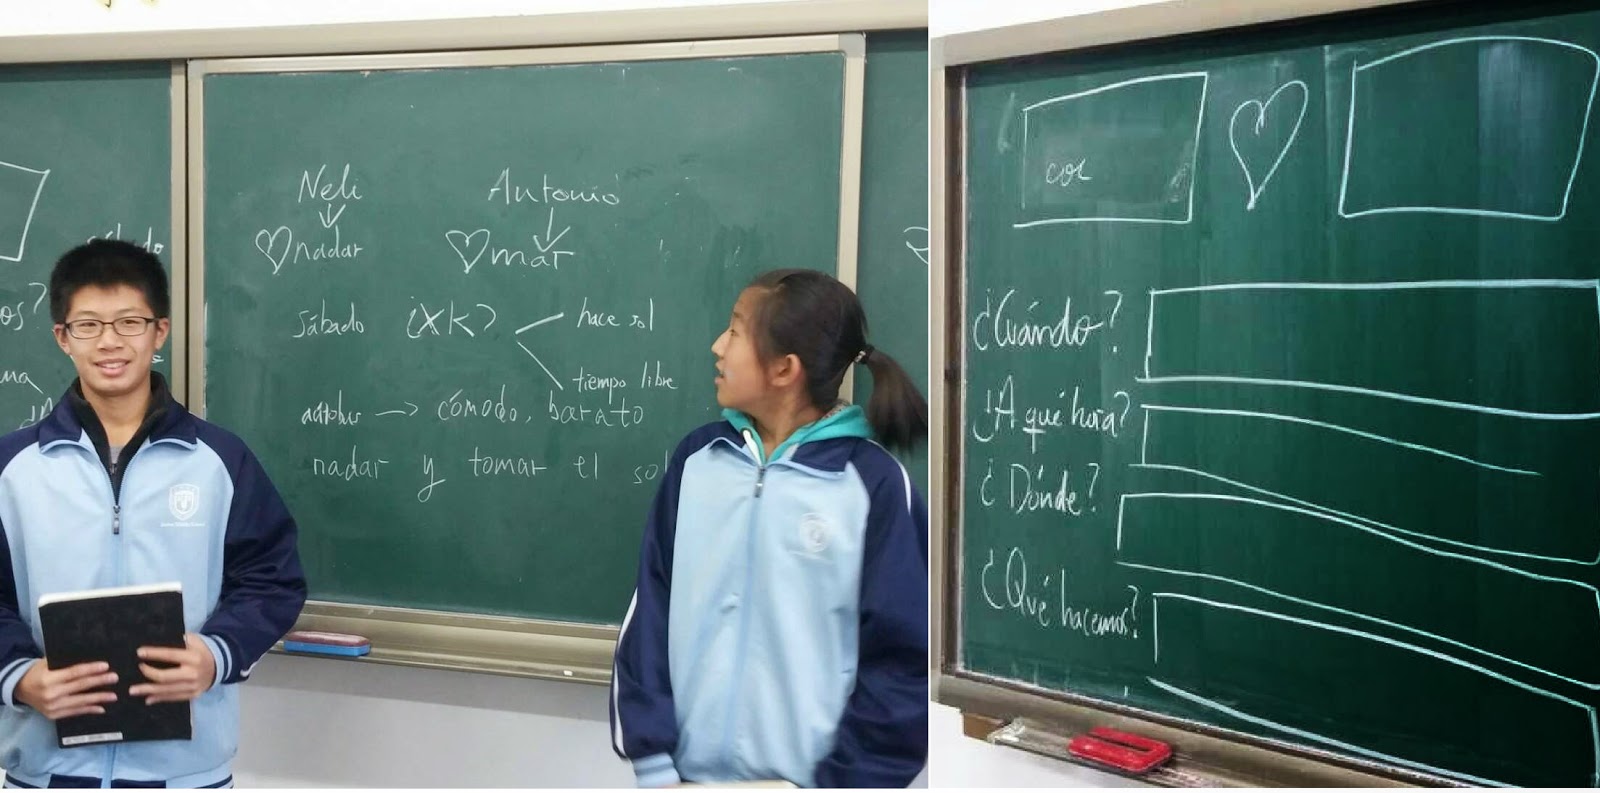 Neli Antonio
♡ nadar ♡ mar
sábado ¿XK? hace sol
tiempo libre
autobus → cómodo, barato
nadar y tomar el sol
sábado
os?
coc
¿Cuándo?
¿A qué hora?
¿Dónde?
¿Qué hacemos?